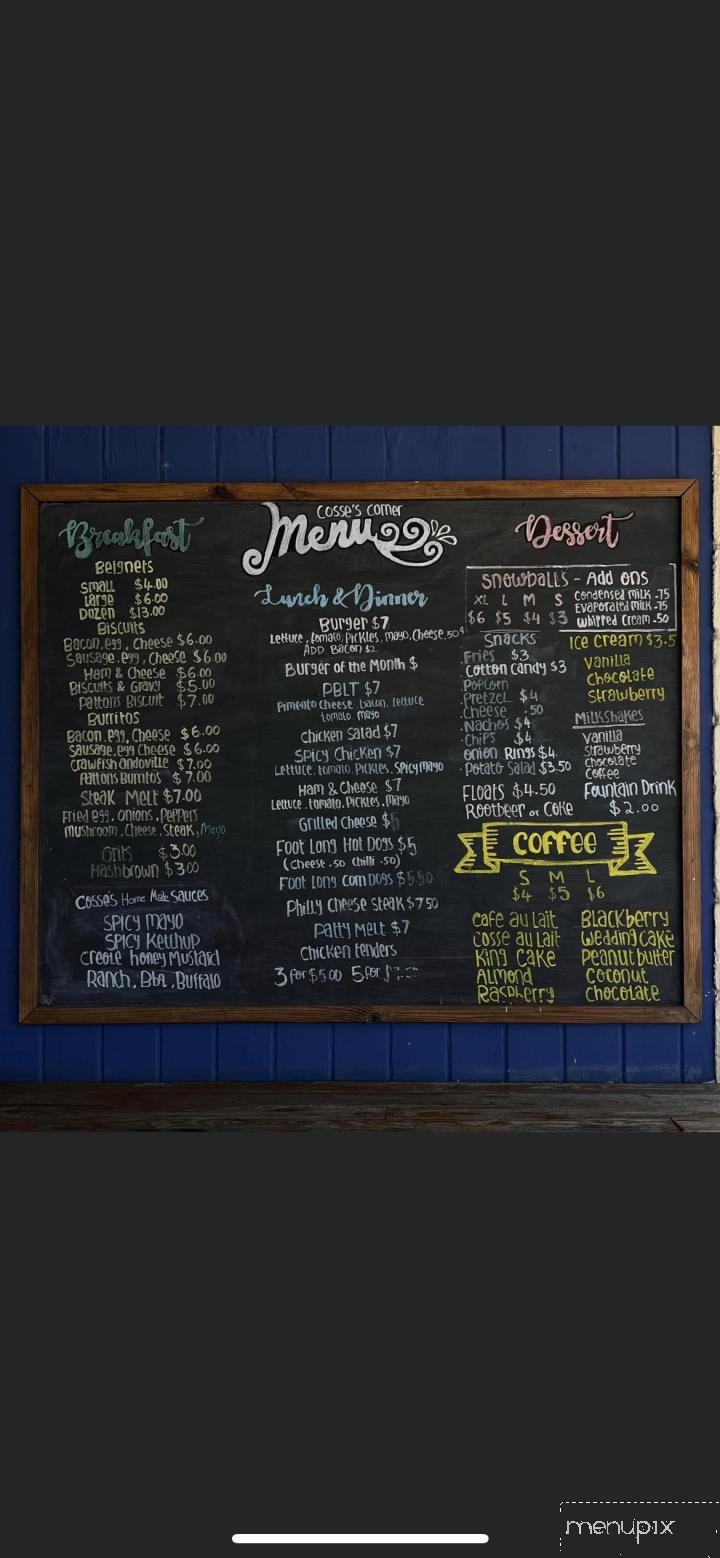 Cosse's corner
Menu
Breakfast
Beignets
Small $4.00
Large $6.00
Dozen $13.00
Biscuits
Bacon, egg, Cheese $6.00
Sausage, egg, Cheese $6.00
Ham & Cheese $6.00
Biscuits & Gravy $5.00
Pattons Biscuit $7.00
Burritos
Bacon, egg, Cheese $6.00
Sausage, egg Cheese $6.00
Crawfish andoville $7.00
Pattons Burritos $7.00
Steak Melt $7.00
Fried egg, onions, Peppers
Mushroom, Cheese, Steak, Mayo
Grits $3.00
Hashbrown $3.00
Cosse's Home Made Sauces
Spicy mayo
Spicy Ketchup
Creole honey Mustard
Ranch, Bbq, Buffalo
Lunch & Dinner
Burger $7
Lettuce, tomato, Pickles, mayo, Cheese .50¢
ADD Bacon $2
Burger of the Month $
PBLT $7
Pimento Cheese, bacon, lettuce
tomato mayo
Chicken Salad $7
Spicy Chicken $7
Lettuce, tomato, Pickles, Spicy mayo
Ham & Cheese $7
Lettuce, tomato, Pickles, mayo
Grilled Cheese $5
Foot Long Hot Dogs $5
(Cheese .50 Chilli .50)
Foot Long Corn Dogs $5.50
Philly Cheese Steak $7.50
Patty Melt $7
Chicken tenders
3 for $5.00 5 for
Dessert
Snowballs - Add ons
XL L M S
$6 $5 $4 $3
Condensed milk .75
Evaporated milk .75
Whipped Cream .50
Snacks
Fries $3
Cotton Candy $3
Popcorn
Pretzel $4
Cheese .50
Nachos $4
Chips $4
Onion Rings $4
Potato Salad $3.50
Floats $4.50
Rootbeer or Coke
Ice Cream $3.5
Vanilla
Chocolate
Strawberry
Milkshakes
Vanilla
Strawberry
Chocolate
Coffee
Fountain Drink
$2.00
Coffee
S M L
$4 $5 $6
Cafe au lait
Cosse au lait
King Cake
Almond
Raspberry
Blackberry
Wedding cake
Peanut butter
Coconut
Chocolate
menupix